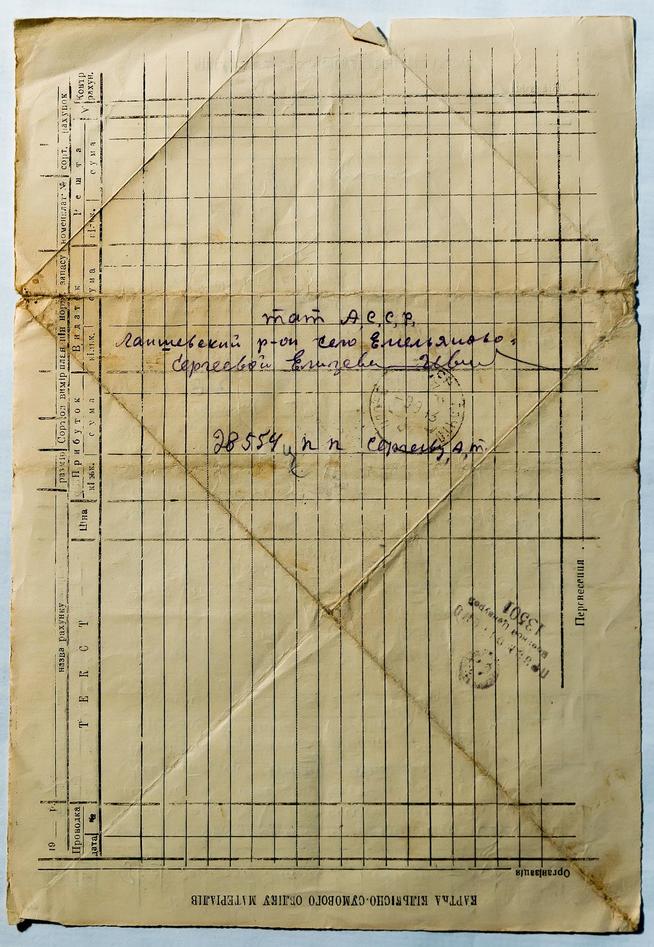 тат А.С.С.Р.
Лаишевский р-он село Емельяново-
Сергеевой Елизеве
28554 п п Сергеев А.т.
Контр
рахун.
рахунок
Решта
сума
кільк.
Видаток
сума
кільк.
Прибуток
сума
кільк.
Ціна
номенклат. №
сорт.
норма запасу
Сорт
розмір
назва рахунку
ТЕКСТ
Проводка
дата
№
19 р.
Перенесення
Просмотрено
Военной Цензурой
13501
Організація
КАРТКА КІЛЬКІСНО-СУМОВОГО ОБЛІКУ МАТЕРІАЛІВ